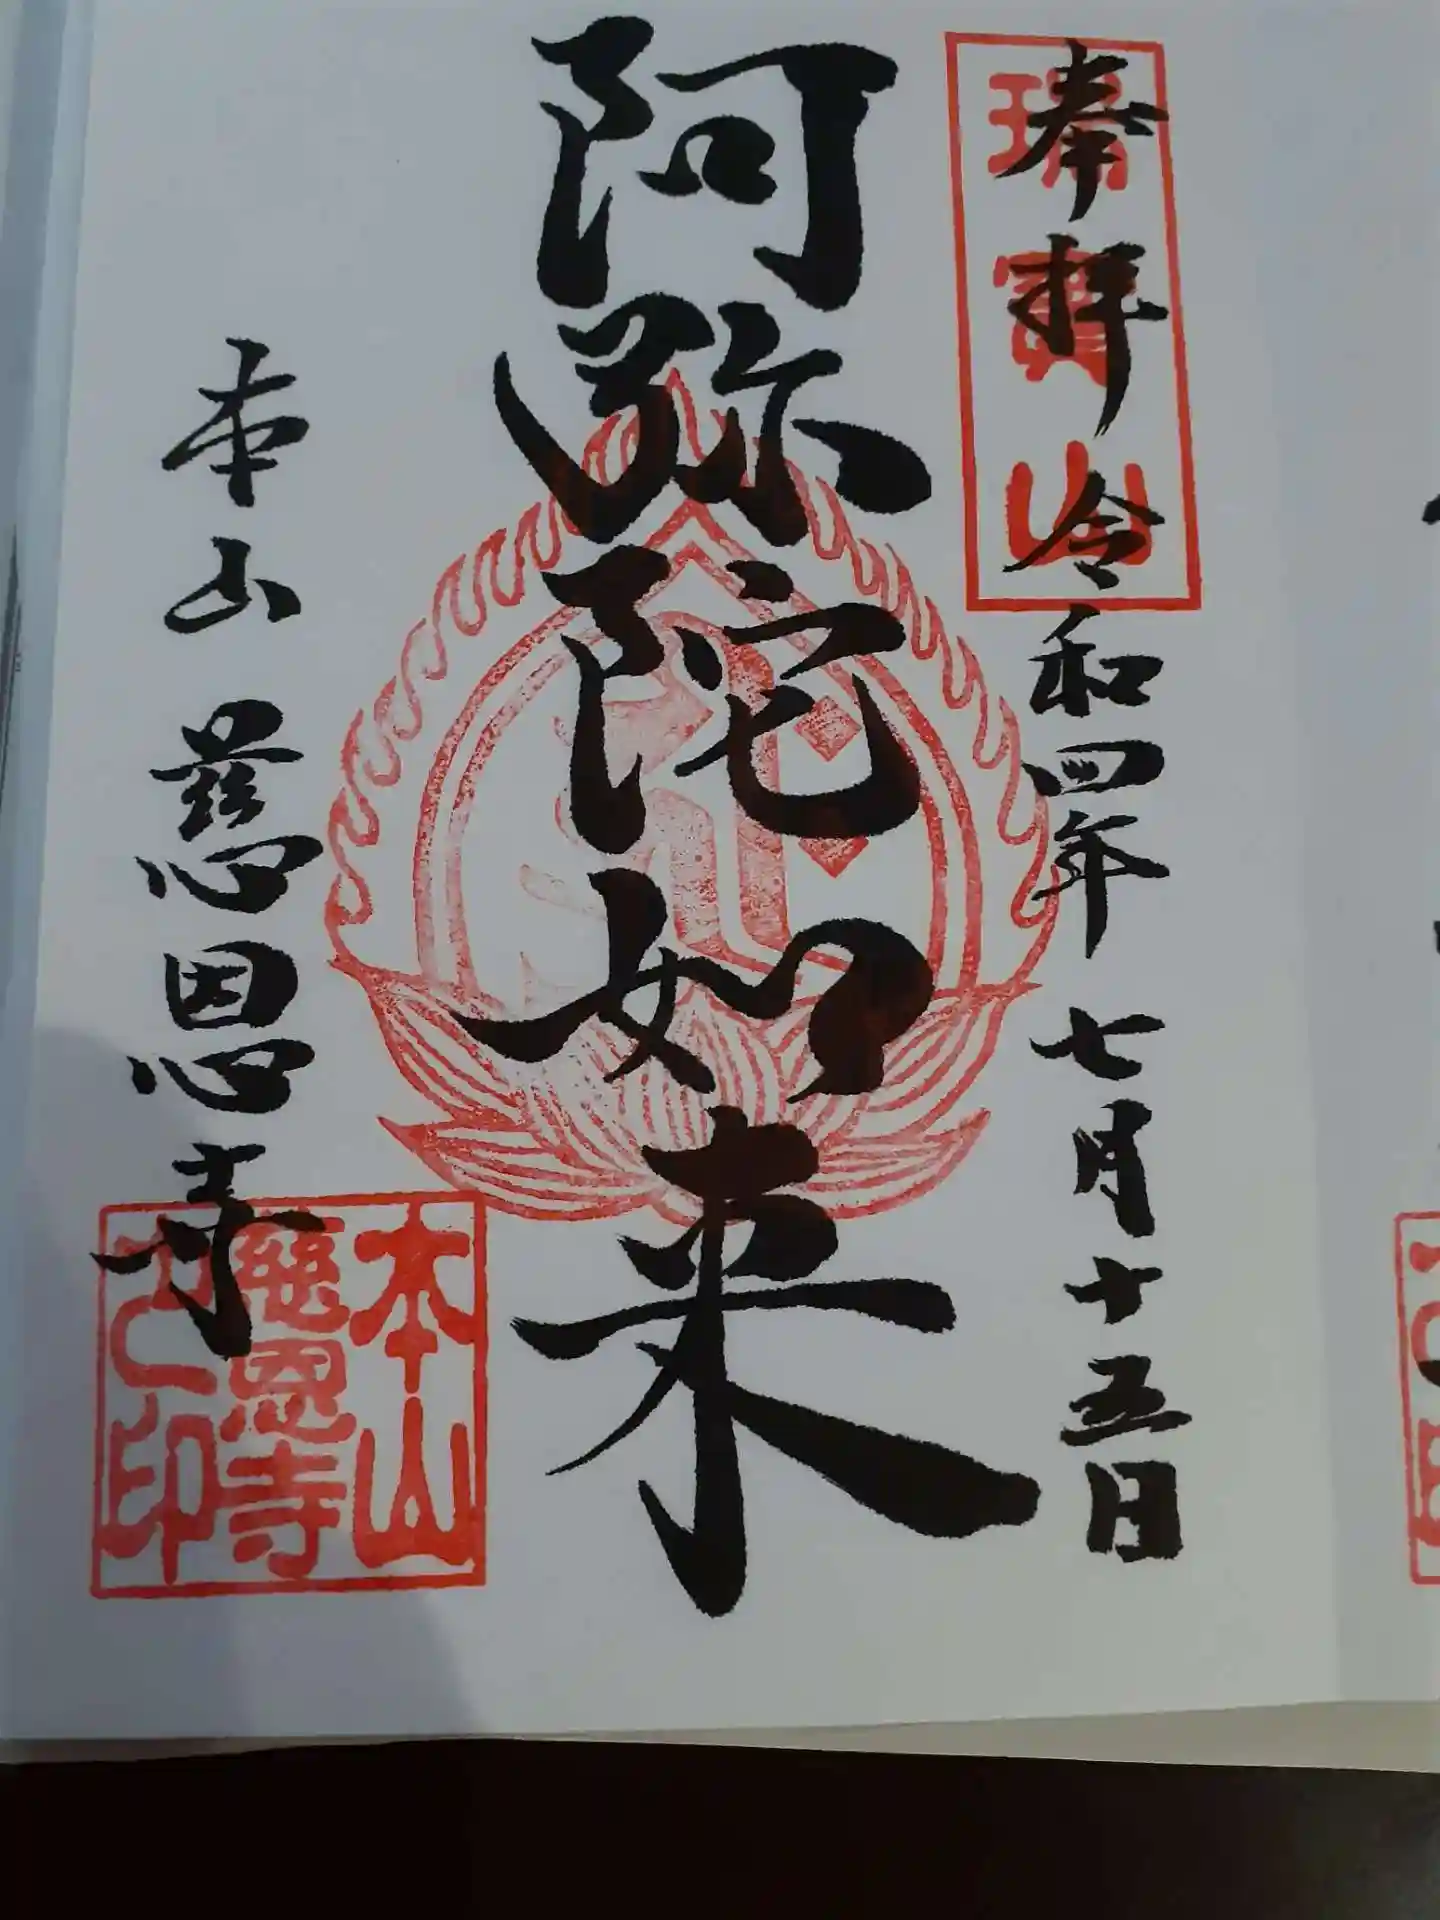 奉拝 令和四年 七月十五日
瑞寳山
阿弥陀如来
本山 慈恩寺
本山
慈恩寺
之印